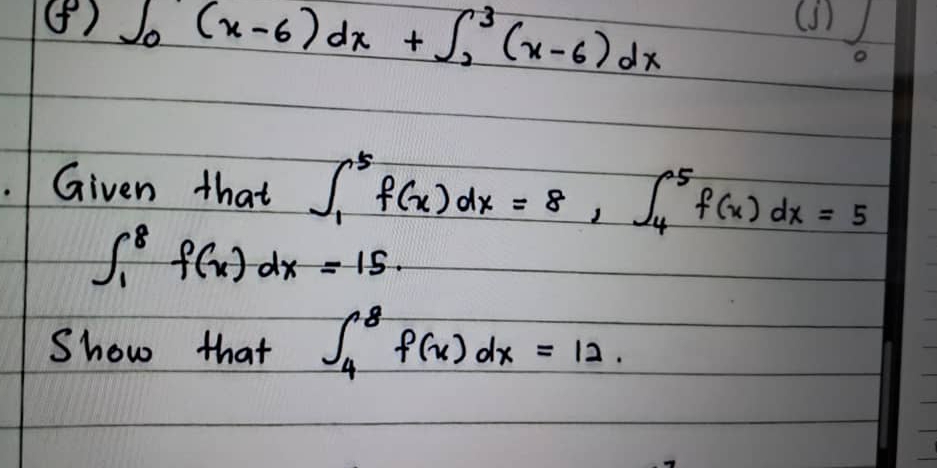 (f) ∫₀ (x-6) dx + ∫₂³ (x-6) dx
(j) ∫₀
. Given that ∫₁⁵ f(x) dx = 8 , ∫₄⁵ f(x) dx = 5
∫₁⁸ f(x) dx = 15.
Show that ∫₄⁸ f(x) dx = 12 .